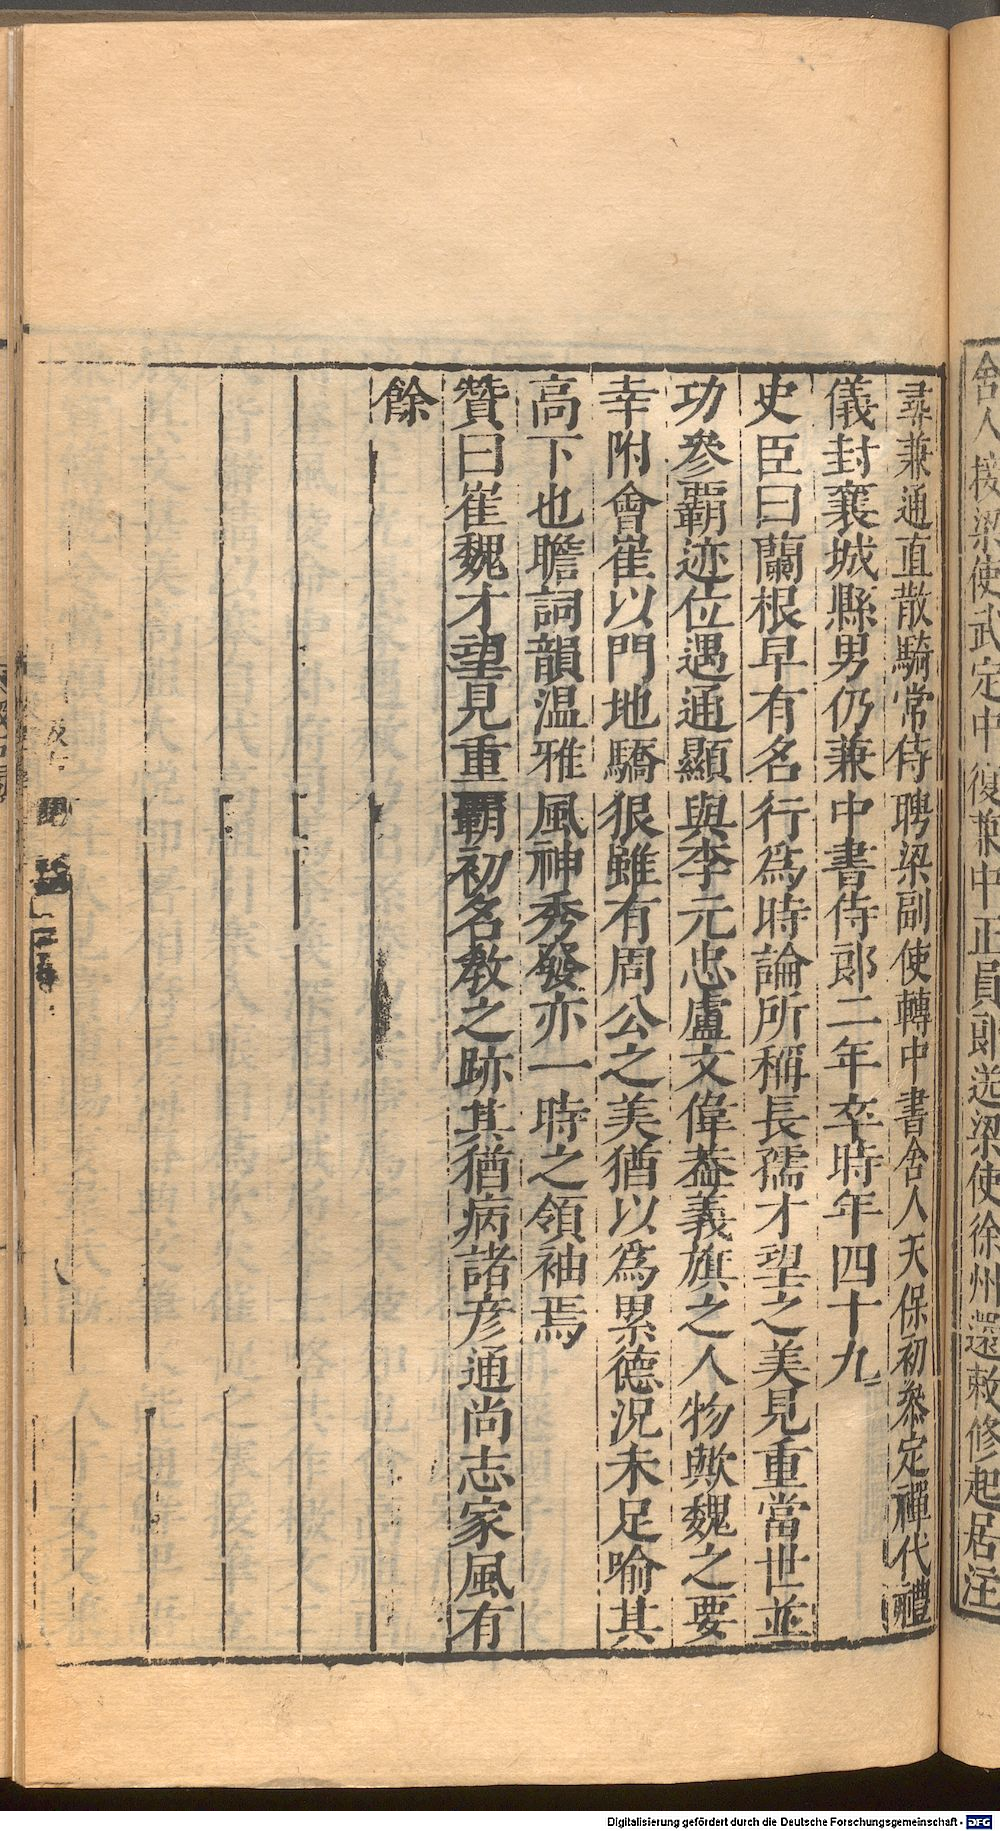 舍人接梁使武定中復兼中正員郎送梁使徐州還敕修起居注
尋兼通直散騎常侍聘梁副使轉中書舍人天保初參定禪代禮
儀封襄城縣男仍兼中書侍郎二年卒時年四十九
史臣曰蘭根早有名行為時論所稱長孺才望之美見重當世並
功參霸迹位遇通顯與李元忠盧文偉葢義旗之人物歟魏之要
幸附會崔以門地驕狠雖有周公之美猶以為累德況未足喻其
高下也瞻詞韻溫雅風神秀發亦一時之領袖焉
贊曰崔魏才望見重霸初名教之跡其猶病諸彥通尚志家風有
餘
Digitalisierung gefördert durch die Deutsche Forschungsgemeinschaft - DFG